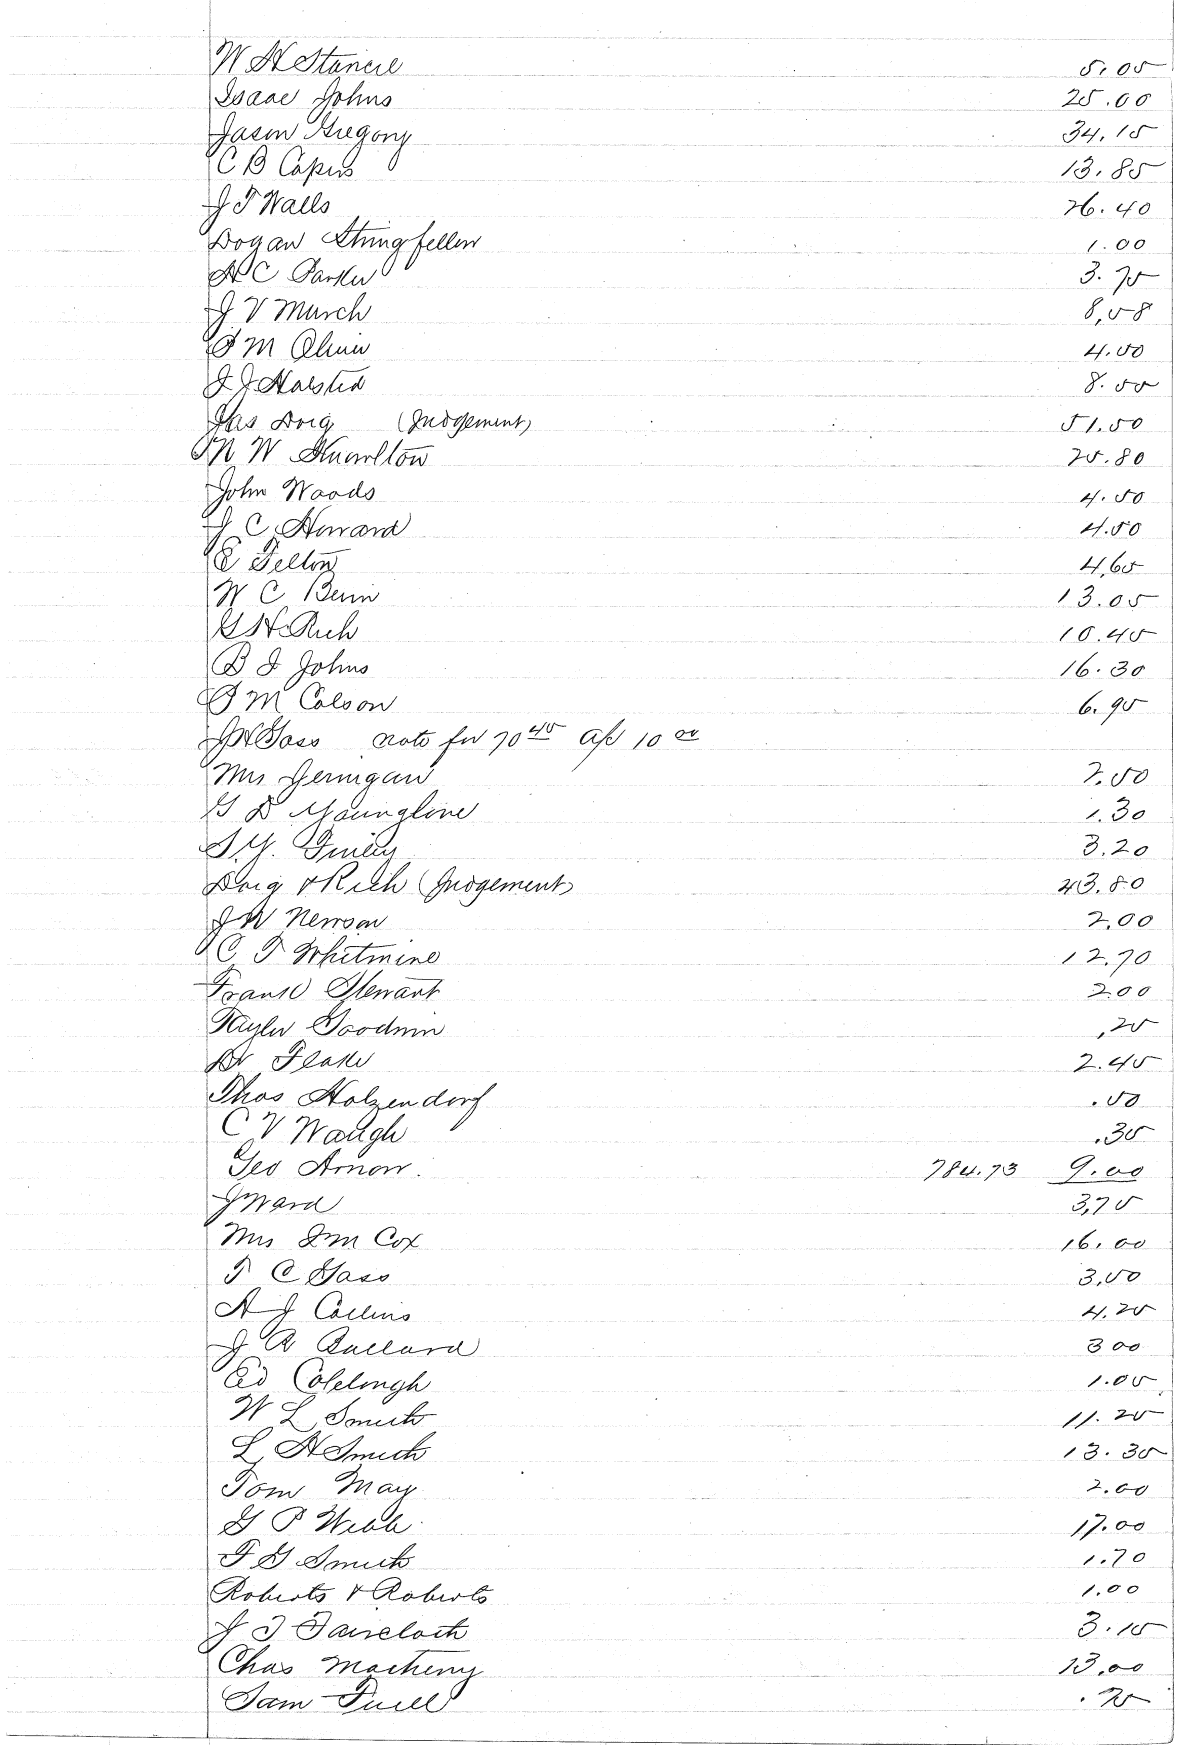 W H Stancil 5.05
Isaac Johns 25.00
Jason Gregory 34.15
C B Capers 13.85
J T Walls 26.40
Dogan Stringfellow 1.00
H C Parker 3.75
J V Murch 8,58
T M 4.50
J J Halsted 8.50
Jas Doig (Judgement) 51.50
N W Knowlton 25.80
John Woods 4.50
J C Howard 4.50
E Felton 4,65
W C 13.05
G H Rich 10.45
B J Johns 16.30
T M Colson 6.95
J H Goss note for 70 45 a/c 10 00
Mrs Jernigan 2.50
G D Youngline 1.30
S. Y. Finley 3.20
Doig & Rich (Judgement) 43.80
J W Newsom 2,00
C T Whitmire 12.70
Frank Stewart 200
Taylor Goodwin ,25
Dr Flake 2.45
Thos Holzendorf .50
C V Waugh .35
Geo Arnow. 784.73 9.00
J Ward 3,75
Mrs J M Cox 16.00
T C Gass 3,50
A J Collins 4.25
J R Ballard 3 00
Ed Colclough 1.05
W L Smith 11.25
L H Smith 13.35
Tom May 2.00
G P Webb 17.00
F G Smith 1.70
Roberts & Roberts 1.00
J T Faircloth 3.15
Chas Matheny 13.00
Sam .75